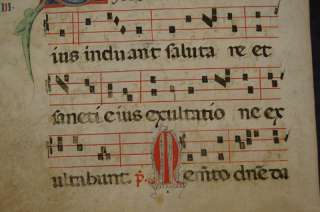 ius induant saluta re et
sancti eius exultatio ne ex
ultabunt. p. Memto dne da